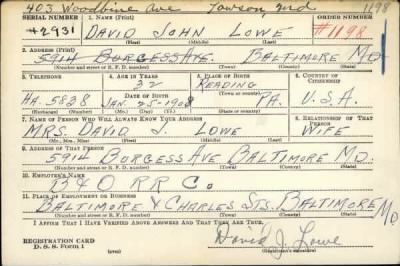 403 Woodbine Ave Towson, Md 1198
SERIAL NUMBER 1. NAME (Print) ORDER NUMBER
2931 DAVID JOHN LOWE #1198
(First) (Middle) (Last)
2. ADDRESS (Print)
5914 BURGESS AVE. BALTIMORE MD
(Number and street or R. F. D. number) (Town) (County) (State)
3. TELEPHONE 4. AGE IN YEARS 5. PLACE OF BIRTH 6. COUNTRY OF CITIZENSHIP
32 READING
HA. 5828 JAN. 25-1908 PA. U.S.A.
7. NAME OF PERSON WHO WILL ALWAYS KNOW YOUR ADDRESS 8. RELATIONSHIP OF THAT PERSON
MRS. DAVID J. LOWE WIFE
(Mr., Mrs., Miss) (First) (Middle) (Last)
9. ADDRESS OF THAT PERSON
5914 BURGESS AVE BALTIMORE MD.
(Number and street or R. F. D. number) (Town) (County) (State)
10. EMPLOYER'S NAME
B & O RR Co
11. PLACE OF EMPLOYMENT OR BUSINESS
BALTIMORE & CHARLES STS. BALTIMORE MD
(Number and street or R. F. D. number) (Town) (County) (State)
I AFFIRM THAT I HAVE VERIFIED ABOVE ANSWERS AND THAT THEY ARE TRUE.
REGISTRATION CARD David J. Lowe
D. S. S. Form 1 (Registrant's signature)